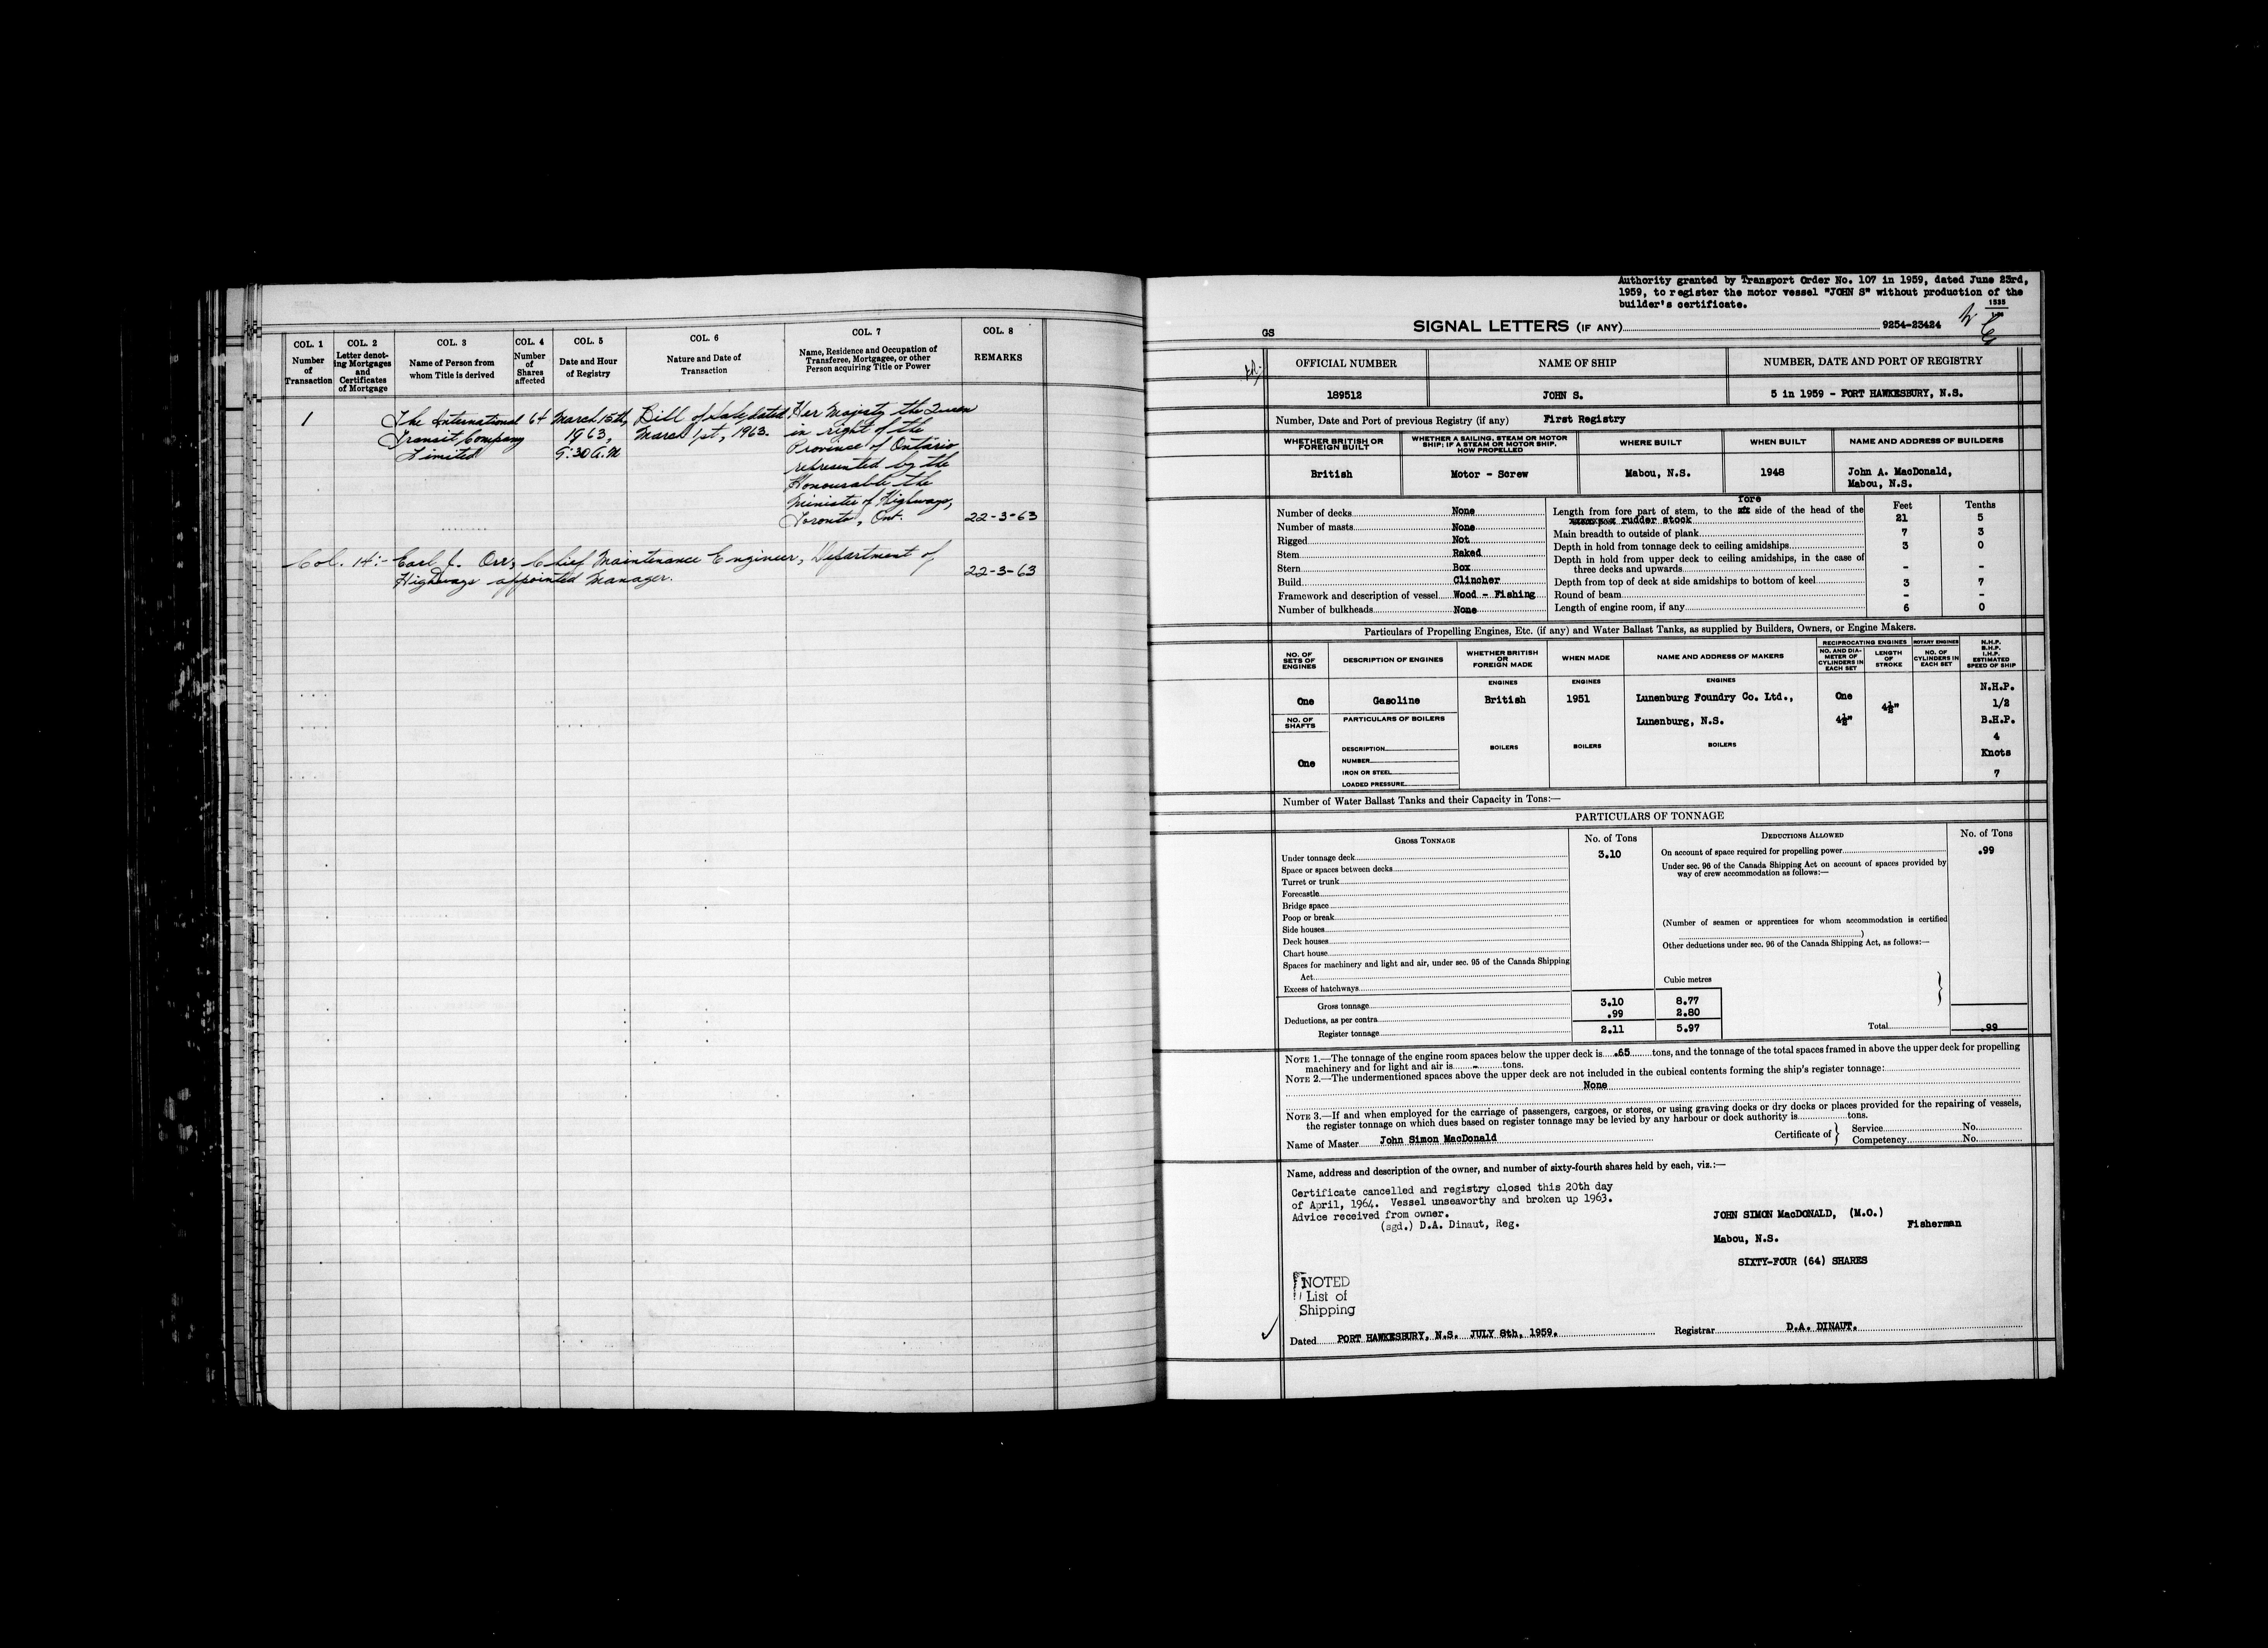 COL. 1
Number
of
Transaction
COL. 2
Letter denot-
ing Mortgages
and
Certificates
of Mortgage
COL. 3
Name of Person from
whom Title is derived
COL. 4
Number
of
Shares
affected
COL. 5
Date and Hour
of Registry
COL. 6
Nature and Date of
Transaction
COL. 7
Name, Residence and Occupation of
Transferee, Mortgagee, or other
Person acquiring Title or Power
COL. 8
REMARKS
1
The International
Transit Company
Limited
64
March 15th,
1963,
9:30 A.M
Bill of Sale dated
March 1st, 1963.
Her Majesty the Queen
in right of the
Province of Ontario
represented by the
Honourable the
Minister of Highways,
Toronto, Ont.
22-3-63
Col. 14:- Earl J. Orr, Chief Maintenance Engineer, Department of
Highways appointed Manager.
22-3-63
Authority granted by Transport Order No. 107 in 1959, dated June 23rd,
1959, to register the motor vessel "JOHN S" without production of the
builder's certificate.
GS
SIGNAL LETTERS (IF ANY) 9254-23424
OFFICIAL NUMBER
NAME OF SHIP
NUMBER, DATE AND PORT OF REGISTRY
189512
JOHN S.
5 in 1959 - PORT HAWKESBURY, N.S.
Number, Date and Port of previous Registry (if any) First Registry
WHETHER BRITISH OR
FOREIGN BUILT
WHETHER A SAILING, STEAM OR MOTOR
SHIP; IF A STEAM OR MOTOR SHIP,
HOW PROPELLED
WHERE BUILT
WHEN BUILT
NAME AND ADDRESS OF BUILDERS
British
Motor - Screw
Mabou, N.S.
1948
John A. MacDonald,
Mabou, N.S.
Number of decks None
Number of masts None
Rigged Not
Stem Raked
Stern Box
Build Clincher
Framework and description of vessel Wood - Fishing
Number of bulkheads None
Feet
Tenths
fore
Length from fore part of stem, to the aft side of the head of the
rudder stock 21 5
Main breadth to outside of plank 7 3
Depth in hold from tonnage deck to ceiling amidships 3 0
Depth in hold from upper deck to ceiling amidships, in the case of
three decks and upwards - -
Depth from top of deck at side amidships to bottom of keel 3 7
Round of beam - -
Length of engine room, if any 6 0
Particulars of Propelling Engines, Etc. (if any) and Water Ballast Tanks, as supplied by Builders, Owners, or Engine Makers.
NO. OF
SETS OF
ENGINES
DESCRIPTION OF ENGINES
WHETHER BRITISH
OR
FOREIGN MADE
WHEN MADE
NAME AND ADDRESS OF MAKERS
RECIPROCATING ENGINES
NO. AND DIA-
METER OF
CYLINDERS IN
EACH SET
LENGTH
OF
STROKE
ROTARY ENGINES
NO. OF
CYLINDERS IN
EACH SET
N.H.P.
B.H.P.
I.H.P.
ESTIMATED
SPEED OF SHIP
ENGINES
ENGINES
ENGINES
One
Gasoline
British
1951
Lunenburg Foundry Co. Ltd.,
Lunenburg, N.S.
One
4½"
4½"
N.H.P.
1/2
B.H.P.
4
Knots
7
NO. OF
SHAFTS
PARTICULARS OF BOILERS
One
DESCRIPTION
NUMBER
IRON OR STEEL
LOADED PRESSURE
BOILERS
BOILERS
BOILERS
Number of Water Ballast Tanks and their Capacity in Tons:—
PARTICULARS OF TONNAGE
GROSS TONNAGE
No. of Tons
DEDUCTIONS ALLOWED
No. of Tons
Under tonnage deck 3.10
Space or spaces between decks
Turret or trunk
Forecastle
Bridge space
Poop or break
Side houses
Deck houses
Chart house
Spaces for machinery and light and air, under sec. 95 of the Canada Shipping
Act
Excess of hatchways
Cubic metres
Gross tonnage 3.10 8.77
Deductions, as per contra .99 2.80
Register tonnage 2.11 5.97
On account of space required for propelling power .99
Under sec. 96 of the Canada Shipping Act on account of spaces provided by
way of crew accommodation as follows:—
(Number of seamen or apprentices for whom accommodation is certified
)
Other deductions under sec. 96 of the Canada Shipping Act, as follows:—
Total .99
NOTE 1.—The tonnage of the engine room spaces below the upper deck is .65 tons, and the tonnage of the total spaces framed in above the upper deck for propelling
machinery and for light and air is - tons.
NOTE 2.—The undermentioned spaces above the upper deck are not included in the cubical contents forming the ship's register tonnage:
None
NOTE 3.—If and when employed for the carriage of passengers, cargoes, or stores, or using graving docks or dry docks or places provided for the repairing of vessels,
the register tonnage on which dues based on register tonnage may be levied by any harbour or dock authority is tons.
Name of Master John Simon MacDonald
Certificate of } Service No.
Competency No.
Name, address and description of the owner, and number of sixty-fourth shares held by each, viz.:—
Certificate cancelled and registry closed this 20th day
of April, 1964. Vessel unseaworthy and broken up 1963.
Advice received from owner.
(sgd.) D.A. Dinaut, Reg.
JOHN SIMON MacDONALD, (M.O.)
Fisherman
Mabou, N.S.
SIXTY-FOUR (64) SHARES
NOTED
List of
Shipping
Dated PORT HAWKESBURY, N.S. JULY 8th, 1959.
Registrar D.A. DINAUT.